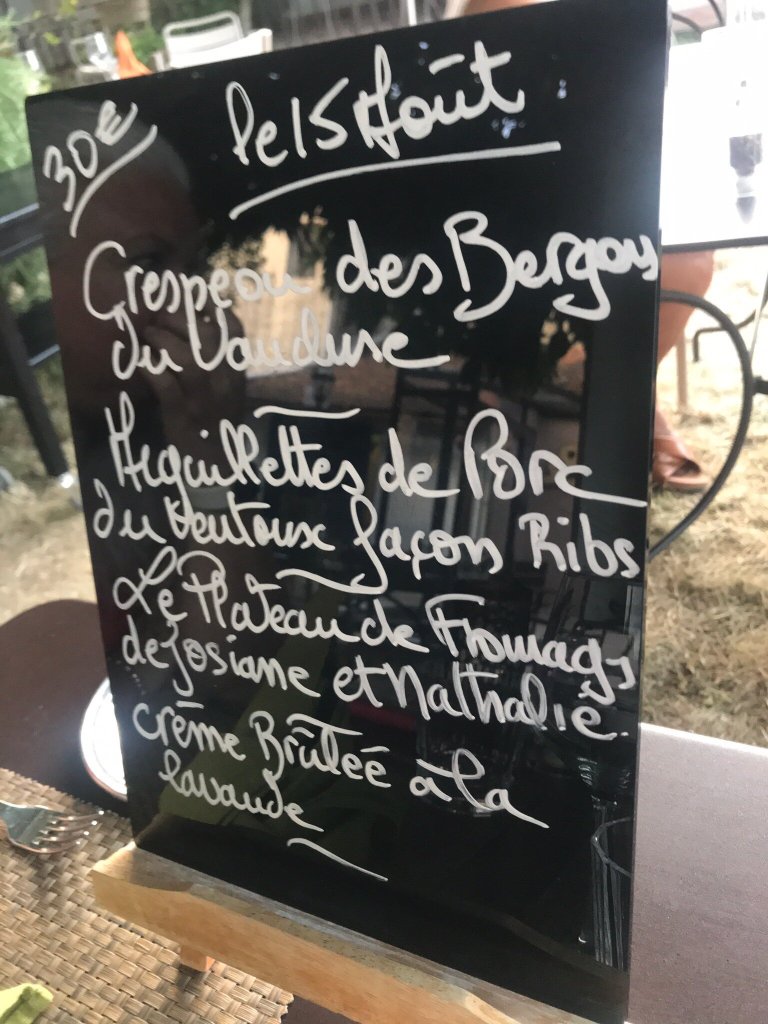 30€
le 15 Août
Crespeou des Bergers
du Vaucluse
Aiguillettes de Porc
du Ventoux façon Ribs
Le Plateau de Fromages
de Josiane et Nathalie.
crème Brûlée à la
lavande